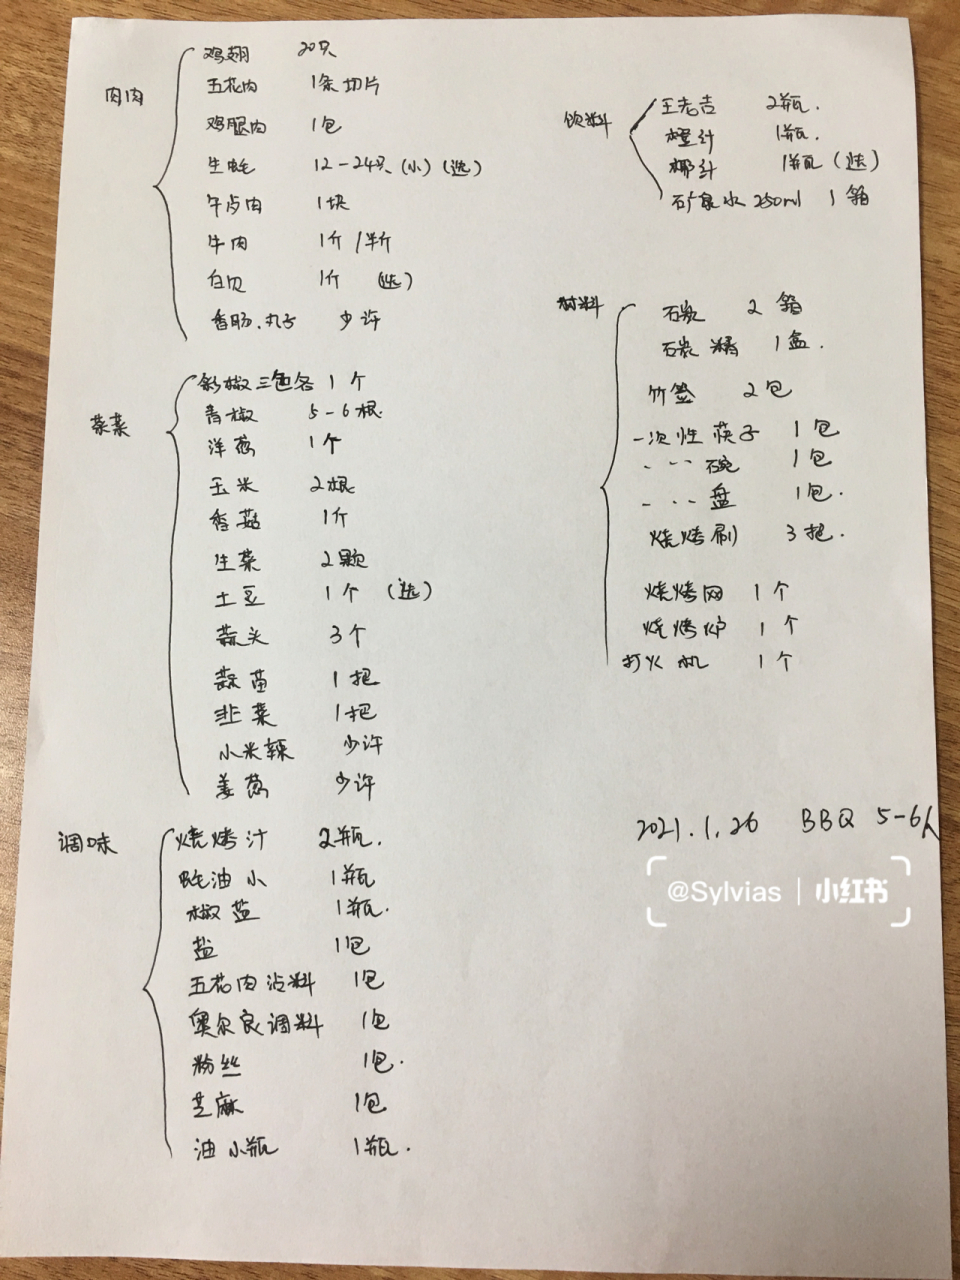 肉肉
鸡翅 20只
五花肉 1条切片
鸡腿肉 1包
生蚝 12-24只(小)(选)
牛占肉 1块
牛肉 1斤/半斤
白贝 1斤 (选)
香肠.丸子 少许
菜菜
彩椒三色各1个
青椒 5-6根
洋葱 1个
玉米 2根
香菇 1斤
生菜 2颗
土豆 1个 (选)
蒜头 3个
蒜苗 1把
韭菜 1把
小米辣 少许
姜葱 少许
调味
烧烤汁 2瓶.
蚝油小 1瓶
椒盐 1瓶.
盐 1包
五花肉沾料 1包
奥尔良调料 1包
粉丝 1包.
芝麻 1包
油小瓶 1瓶.
饮料
王老吉 2瓶.
橙汁 1瓶.
椰汁 1瓶(选)
矿泉水250ml 1箱
材料
石炭 2箱
石炭精 1盒.
竹签 2包
一次性筷子 1包
---碗 1包
---盘 1包.
烧烤刷 3把.
烧烤网 1个
烧烤炉 1个
打火机 1个
2021.1.26 BBQ 5-6人
@Sylvias | 小红书